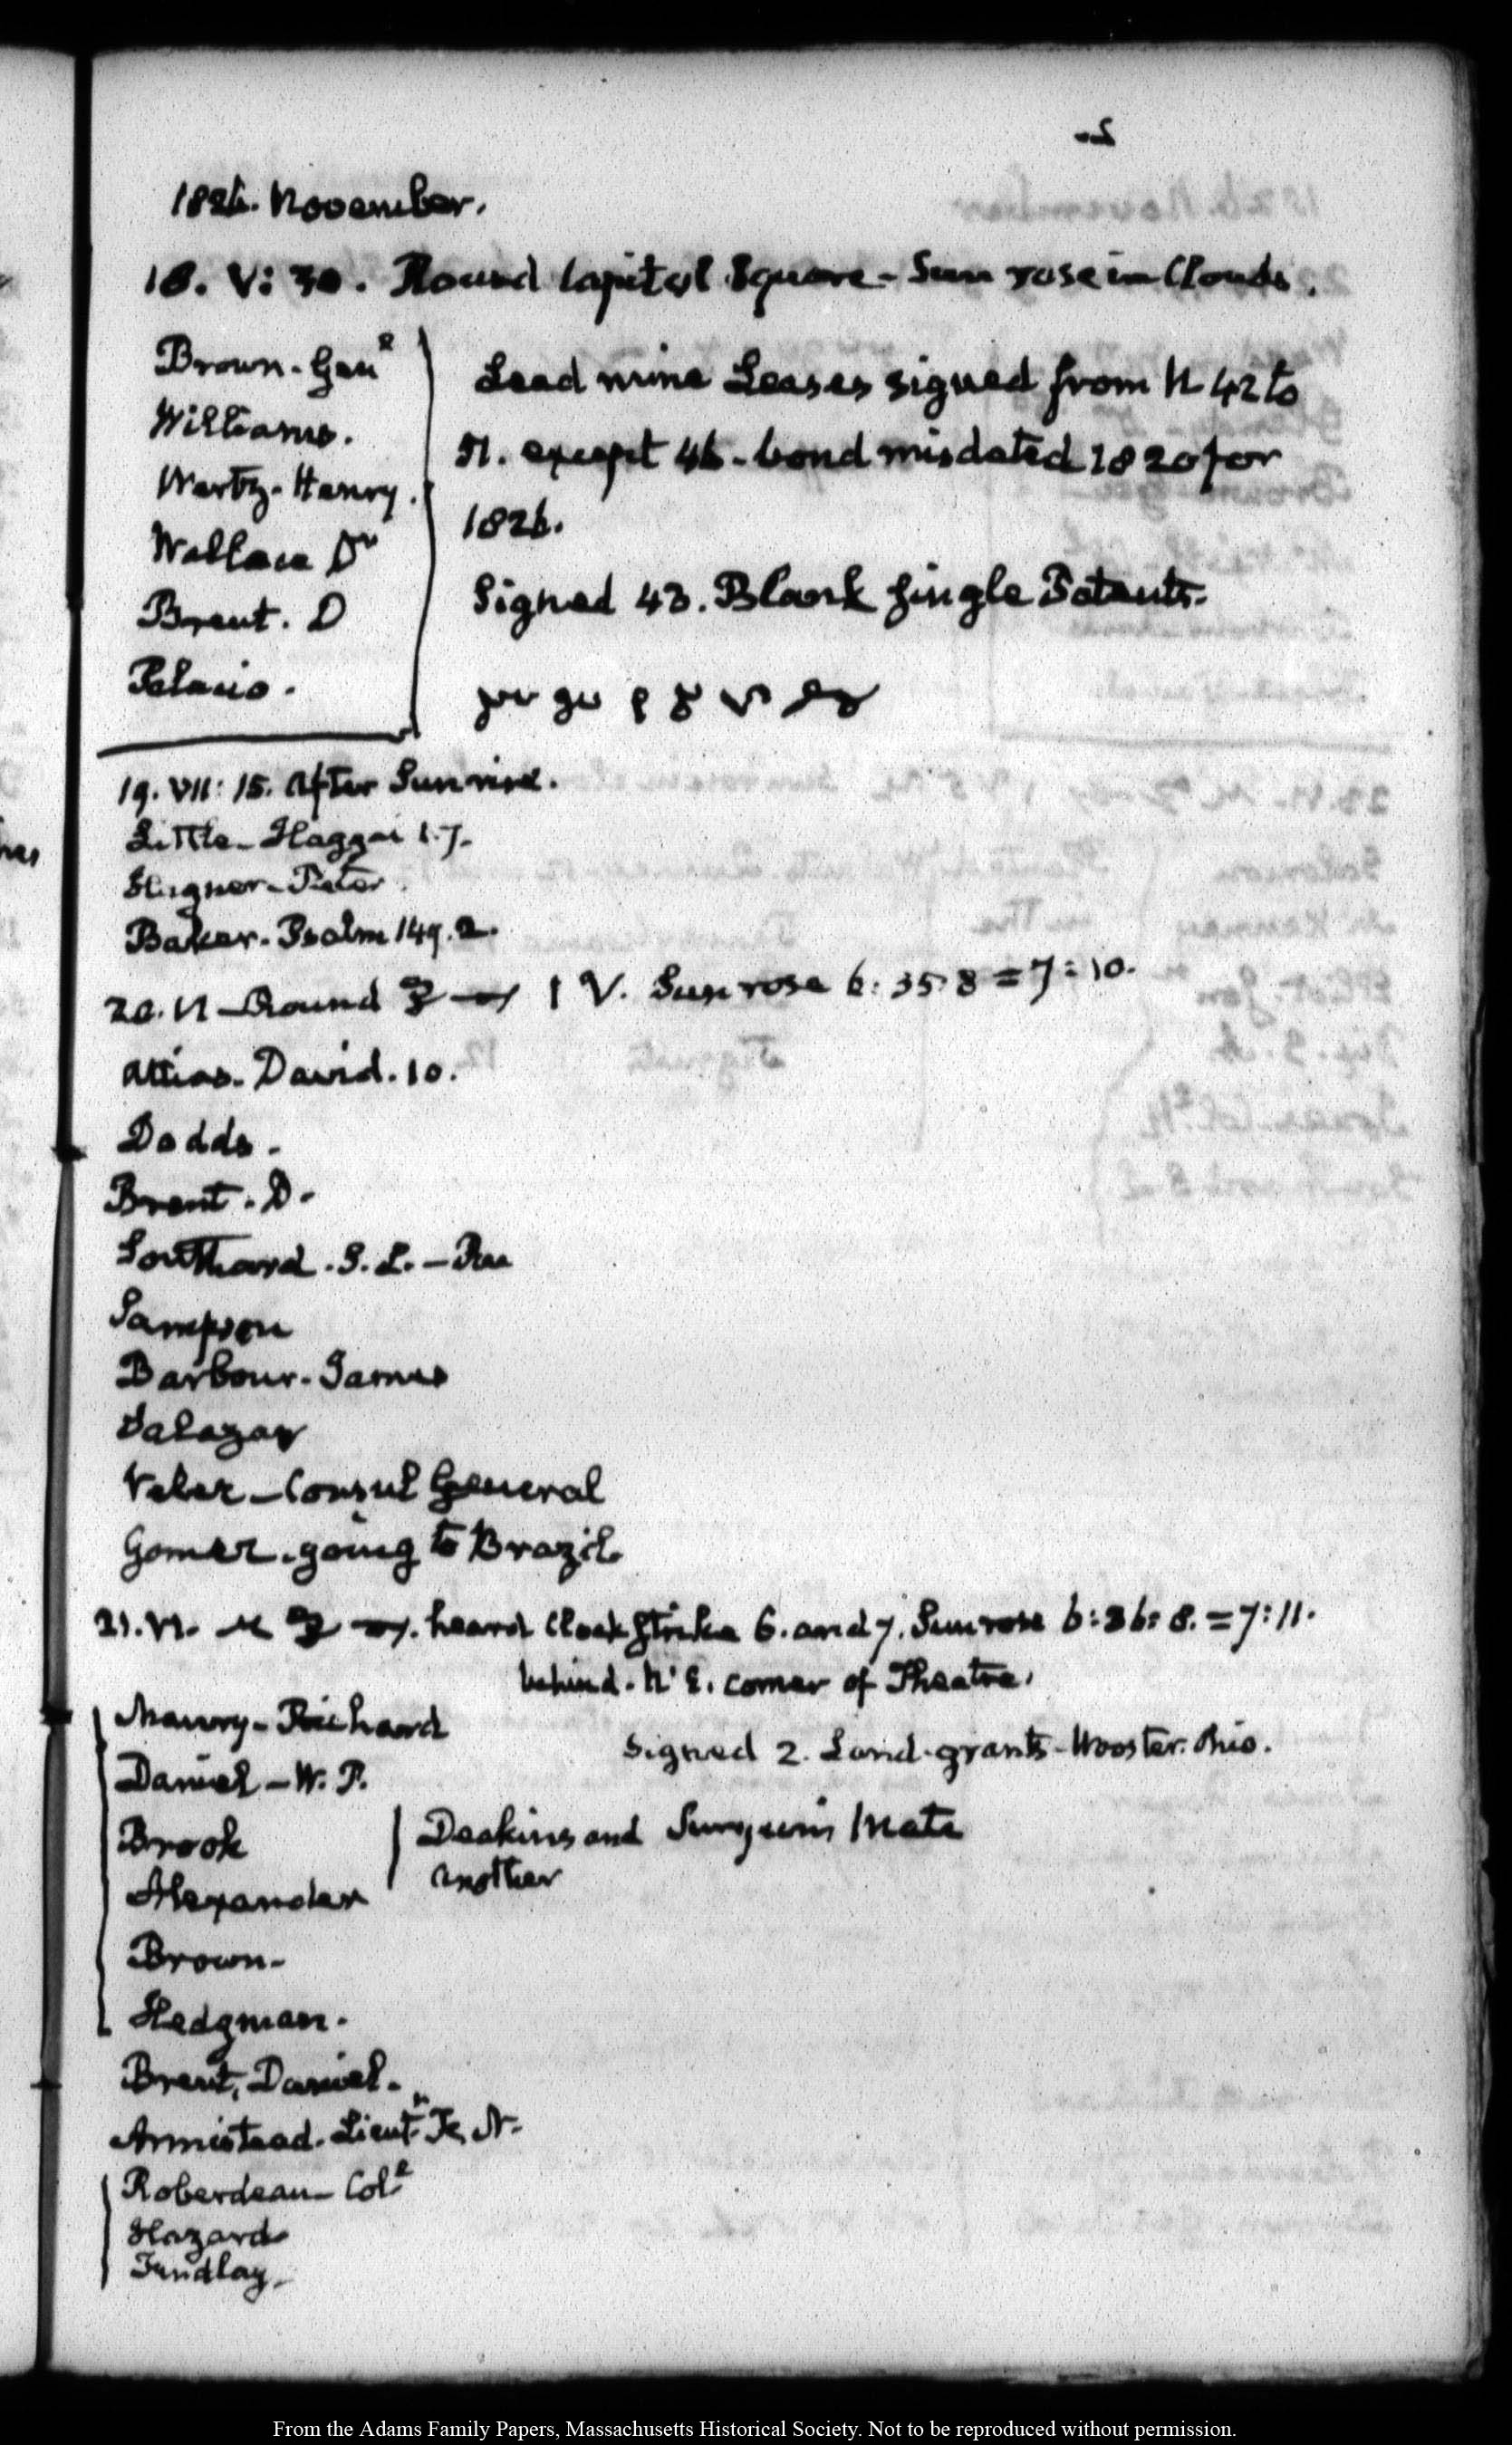 1826. November.
18. V: 30. Round Capitol Square - Sun rose in Clouds.
Brown - Genl
Williams.
Wertz - Henry.
Wallace Dr
Brent. D
Palacio.
Lead mine Leases signed from N 42 to
51. except 46 - bond misdated 1820 for
1826.
Signed 43. Blank single Patents.
19. VII: 15. After Sunrise.
Little - Haggai 1. 7.
Hagner - Peter.
Baker - Psalm 149. 2.
20. VI - Round V. Sun rose 6: 35: 8 = 7: 10.
Attias - David. 10.
Dodds.
Brent. D.
Southard. S. L. -
Sampson
Barbour - James
Salazar
Velez - Consul General
Gomez. going to Brazil.
21. VI. heard Clock strike 6. and 7. Sun rose 6: 36: 8. = 7: 11.
behind. N. E. corner of Theatre.
Maury - Richard
Signed 2. Land-grants - Wooster. Ohio.
Daniel - W. P.
Brook
Deakins and Surgeon's Mate
Alexander
another
Brown -
Hedgman.
Brent, Daniel.
Armistead. Lieut N.
Roberdeau - Coll
Hazard
Findlay
From the Adams Family Papers, Massachusetts Historical Society. Not to be reproduced without permission.